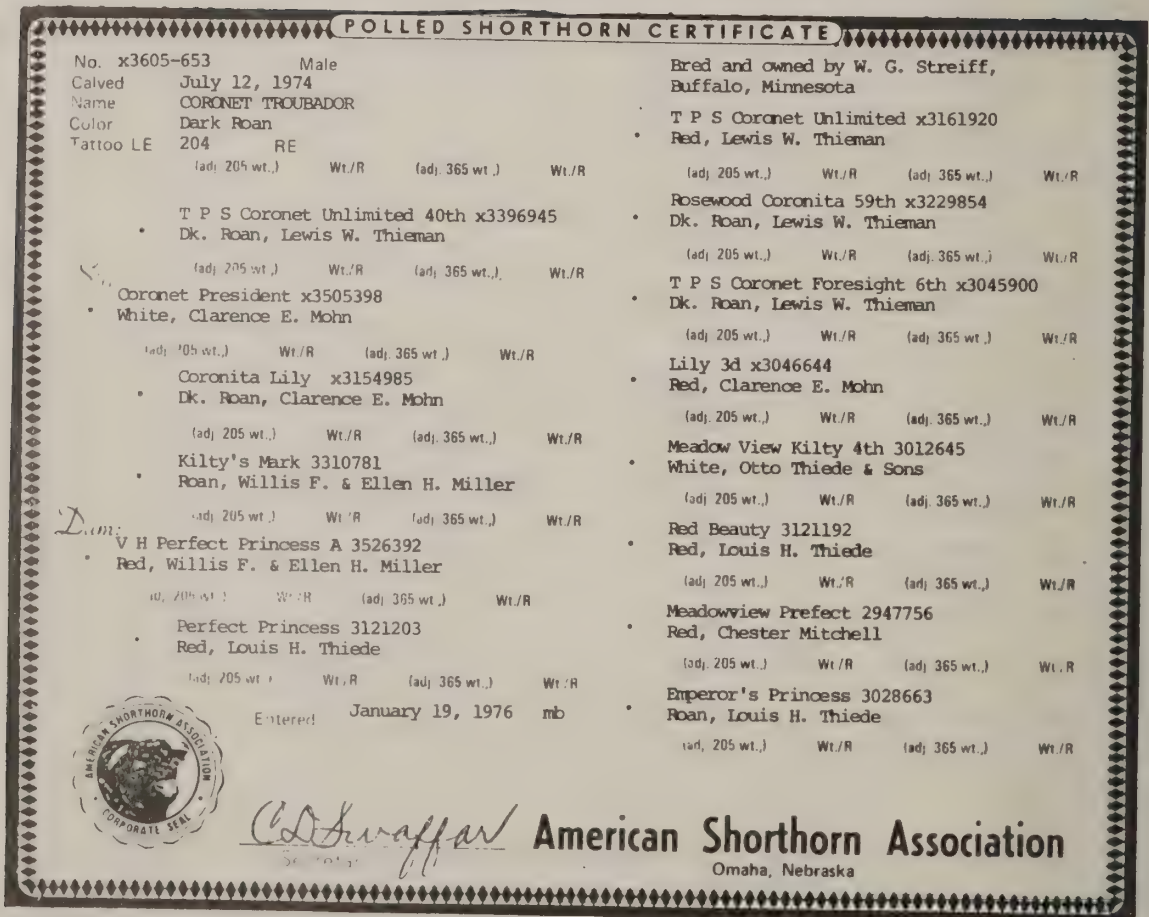 POLLED SHORTHORN CERTIFICATE
No. x3605-653 Male
Calved July 12, 1974
Name CORONET TROUBADOR
Color Dark Roan
Tattoo LE 204 RE
(adj 205 wt.,) Wt./R (adj. 365 wt.,) Wt./R
T P S Coronet Unlimited 40th x3396945
Dk. Roan, Lewis W. Thieman
(adj 205 wt.,) Wt./R (adj. 365 wt.,) Wt./R
Coronet President x3505398
White, Clarence E. Mohn
(adj 205 wt.,) Wt./R (adj. 365 wt.,) Wt./R
Coronita Lily x3154985
Dk. Roan, Clarence E. Mohn
(adj 205 wt.,) Wt./R (adj 365 wt.,) Wt./R
Kilty's Mark 3310781
Roan, Willis F. & Ellen H. Miller
(adj 205 wt.,) Wt./R (adj 365 wt.,) Wt./R
Dam:
V H Perfect Princess A 3526392
Red, Willis F. & Ellen H. Miller
(adj 205 wt.,) Wt./R (adj 365 wt.,) Wt./R
Perfect Princess 3121203
Red, Louis H. Thiede
(adj 205 wt.,) Wt./R (adj 365 wt.,) Wt./R
Entered January 19, 1976 mb
Bred and owned by W. G. Streiff,
Buffalo, Minnesota
T P S Coronet Unlimited x3161920
Red, Lewis W. Thieman
(adj 205 wt.,) Wt./R (adj 365 wt.,) Wt./R
Rosewood Coronita 59th x3229854
Dk. Roan, Lewis W. Thieman
(adj 205 wt.,) Wt./R (adj. 365 wt.,) Wt./R
T P S Coronet Foresight 6th x3045900
Dk. Roan, Lewis W. Thieman
(adj 205 wt.,) Wt./R (adj 365 wt.,) Wt./R
Lily 3d x3046644
Red, Clarence E. Mohn
(adj 205 wt.,) Wt./R (adj 365 wt.,) Wt./R
Meadow View Kilty 4th 3012645
White, Otto Thiede & Sons
(adj 205 wt.,) Wt./R (adj 365 wt.,) Wt./R
Red Beauty 3121192
Red, Louis H. Thiede
(adj 205 wt.,) Wt./R (adj 365 wt.,) Wt./R
Meadowview Prefect 2947756
Red, Chester Mitchell
(adj. 205 wt.,) Wt./R (adj 365 wt.,) Wt./R
Emperor's Princess 3028663
Roan, Louis H. Thiede
(adj, 205 wt.,) Wt./R (adj 365 wt.,) Wt./R
AMERICAN SHORTHORN ASSOCIATION
CORPORATE SEAL
C D Swaffar
Secretary
American Shorthorn Association
Omaha, Nebraska